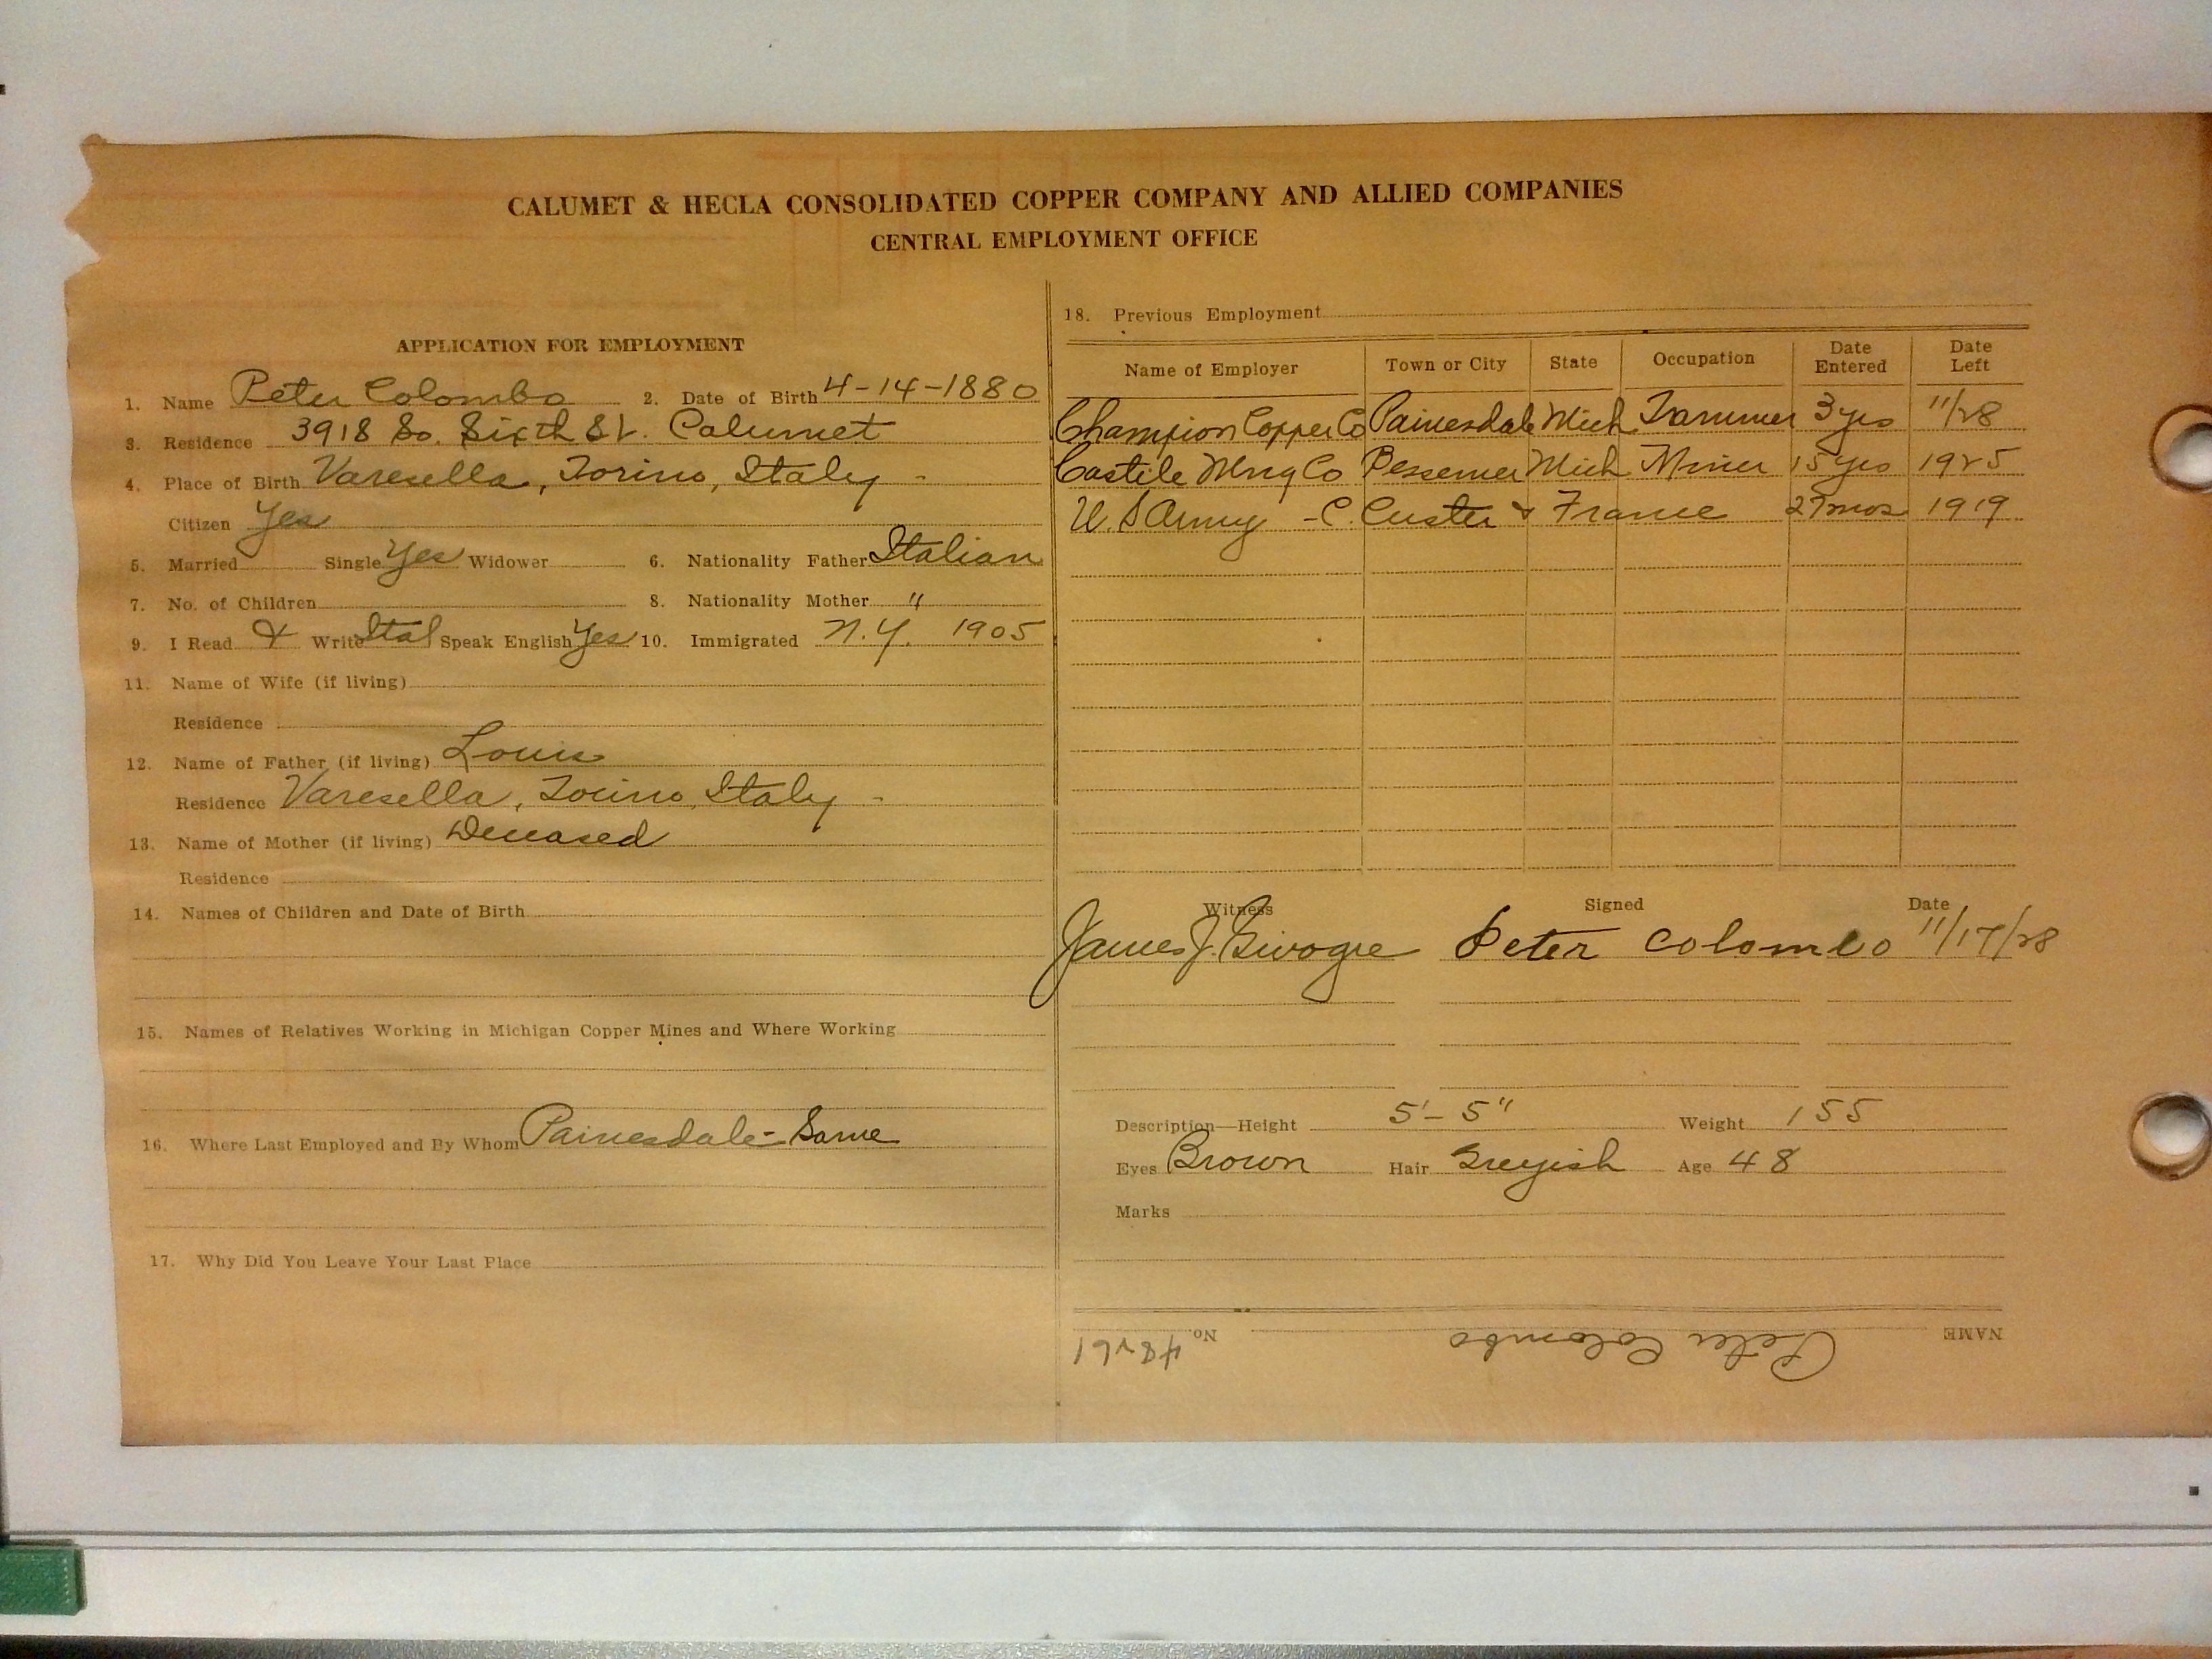 CALUMET & HECLA CONSOLIDATED COPPER COMPANY AND ALLIED COMPANIES
CENTRAL EMPLOYMENT OFFICE
APPLICATION FOR EMPLOYMENT
1. Name Peter Colombo 2. Date of Birth 4-14-1880
3. Residence 3918 So. Sixth St. Calumet
4. Place of Birth Varesella, Torino, Italy -
Citizen Yes
5. Married Single Yes Widower 6. Nationality Father Italian
7. No. of Children 8. Nationality Mother "
9. I Read & Write Ital Speak English Yes 10. Immigrated N.Y. 1905
11. Name of Wife (if living)
Residence
12. Name of Father (if living) Louis
Residence Varesella, Torino, Italy -
13. Name of Mother (if living) Deceased
Residence
14. Names of Children and Date of Birth
15. Names of Relatives Working in Michigan Copper Mines and Where Working
16. Where Last Employed and By Whom Painesdale - Same
17. Why Did You Leave Your Last Place
18. Previous Employment
Name of Employer Town or City State Occupation Date Entered Date Left
Champion Copper Co Painesdale Mich Trammer 3 yrs 11/28
Castile Mng Co Bessemer Mich Miner 15 yrs 1925
U.S Army - C. Custer & France 27 mos 1919
Witness Signed Date
James J. Peter Colombo 11/17/28
Description—Height 5'- 5" Weight 155
Eyes Brown Hair Greyish Age 48
Marks
NAME Peter Colombo No. 48261